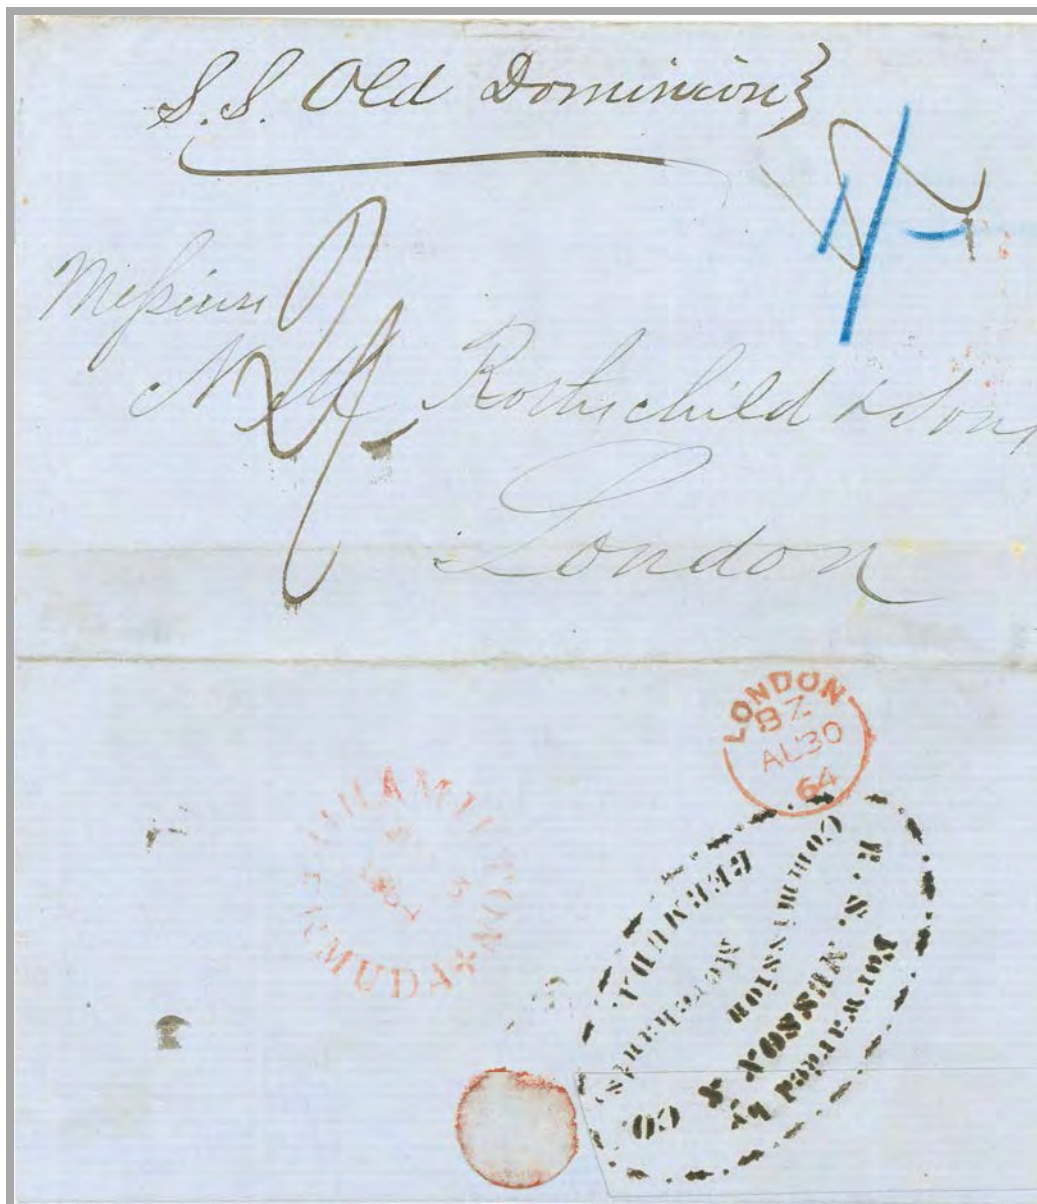 S.S. Old Dominion
1/-
Messieurs
N M Rothschild & Sons
London
LONDON
BZ
AU 30
64
HAMILTON
BERMUDA
Forwarded by
R. S. MUSSON & CO.
Commission
Merchants,
BERMUDA.